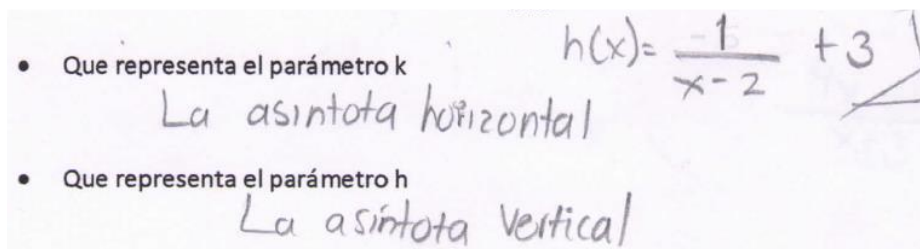 h(x)= 1/(x-2) +3
• Que representa el parámetro k
La asintota horizontal
• Que representa el parámetro h
La asíntota vertical